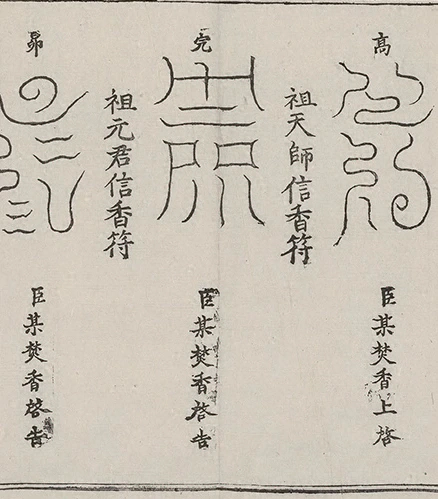 高
臣某焚香上啓
祖天師信香符
完
臣某焚香啓告
祖元君信香符
臣某焚香啓告